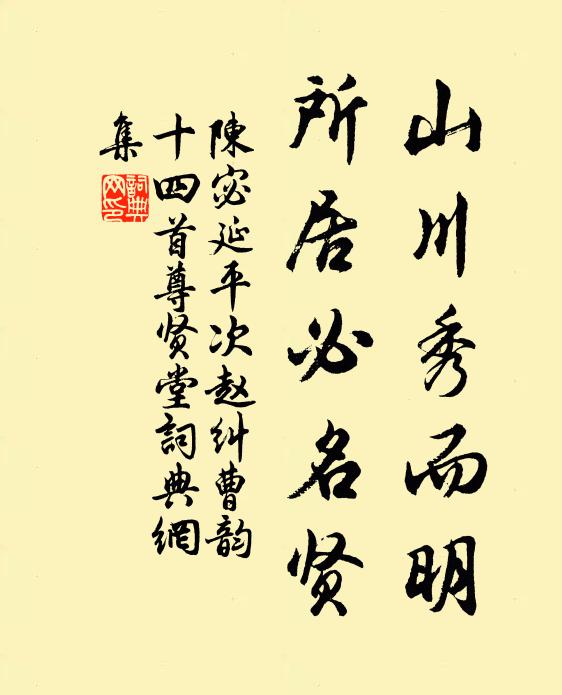 山川秀而明
所居必名贤
陳宓延平次赵纠曹韵
十四首尊贤堂詞典網
集
詞典
网印